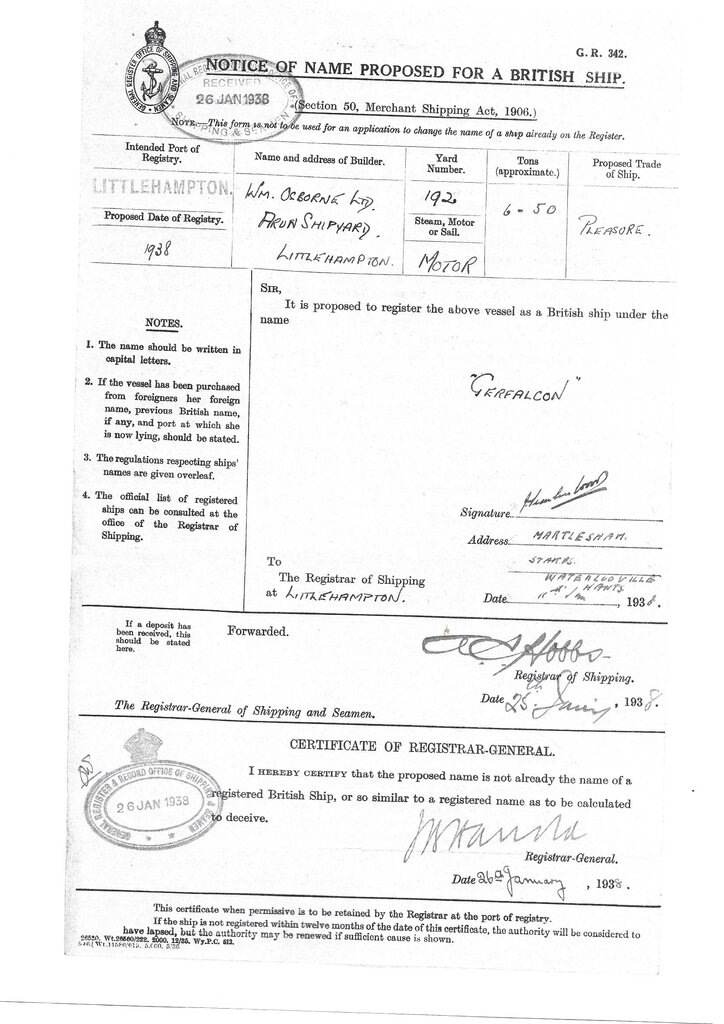 G. R. 342.
NOTICE OF NAME PROPOSED FOR A BRITISH SHIP.
GENERAL REGISTER OFFICE OF SHIPPING AND SEAMEN
RECEIVED
26 JAN 1938
SHIPPING & SEAMEN
(Section 50, Merchant Shipping Act, 1906.)
NOTE.—This form is not to be used for an application to change the name of a ship already on the Register.
Intended Port of
Registry.
LITTLEHAMPTON.
Proposed Date of Registry.
1938
Name and address of Builder.
WM. OSBORNE LTD.
ARUN SHIPYARD.
LITTLEHAMPTON.
Yard
Number.
192
Steam, Motor
or Sail.
MOTOR
Tons
(approximate.)
6-50
Proposed Trade
of Ship.
PLEASURE.
NOTES.
1. The name should be written in
capital letters.
2. If the vessel has been purchased
from foreigners her foreign
name, previous British name,
if any, and port at which she
is now lying, should be stated.
3. The regulations respecting ships'
names are given overleaf.
4. The official list of registered
ships can be consulted at the
office of the Registrar of
Shipping.
SIR,
It is proposed to register the above vessel as a British ship under the
name
"GERFALCON"
Signature
Address MARTLESHAM.
WATERLOOVILLE
HANTS.
Date , 1938.
To
The Registrar of Shipping
at LITTLEHAMPTON.
If a deposit has
been received, this
should be stated
here.
Forwarded.
Hobbs
Registrar of Shipping.
Date 25th , 1938.
The Registrar-General of Shipping and Seamen.
CERTIFICATE OF REGISTRAR-GENERAL.
GENERAL REGISTER & RECORD OFFICE OF SHIPPING & SEAMEN
26 JAN 1938
I HEREBY CERTIFY that the proposed name is not already the name of a
registered British Ship, or so similar to a registered name as to be calculated
to deceive.
Registrar-General.
Date 26th January , 1938.
This certificate when permissive is to be retained by the Registrar at the port of registry.
If the ship is not registered within twelve months of the date of this certificate, the authority will be considered to
have lapsed, but the authority may be renewed if sufficient cause is shown.
26530, Wt.26560/222. 2000. 12/35. Wy.P.C. 613.